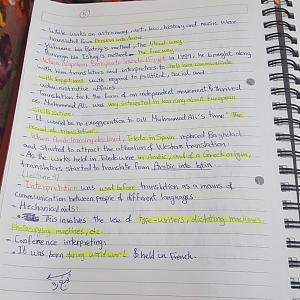 (5)
- While works on astronomy, art, law, history and music were
translated from Persian into Arabic
- Yuhanna Ibn Batriq's method, the literal way
- Hunayn Ibn Ishaq's method - The free way
- When Napoleon Bonaparte invaded Egypt in 1797, he brought along
with him translators and interpreters to help him communicate
with Egyptians with regard to political, social and
administrative affairs
- Translation took the form of an independent movement & thrived
as Muhammad Ali was very interested in learning about European
civilization
- It would be no exaggeration to call Muhammad Ali's time "The
Period of translation"
- When Arab learning declined, Toledo in Spain replaced Baghdad
and started to attract the attention of Western translation
- As the works held in Toledo were in Arabic, and of a Greek origin,
translators started to translate from Arabic into Latin
Lecture
- Interpretation was used before translation as a means of
communication between people of different languages.
- Mechanical aids:
This involves the use of type-writers, dictating machines,
photocopying machines, etc.
- Conference interpreting:
. It was born during world war I & held in French.